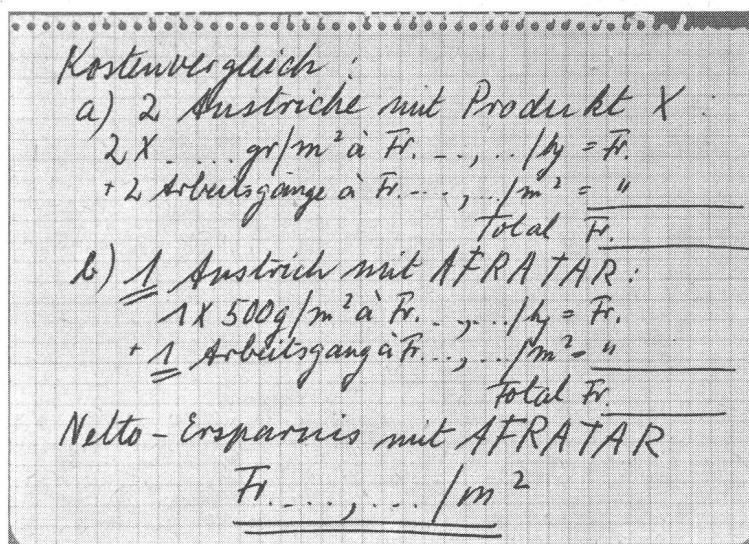 Kostenvergleich :
a) 2 Anstriche mit Produkt X :
2 X ..... gr/m² à Fr. ..,../kg = Fr.
+ 2 Arbeitsgänge à Fr. ...,../m² = "
Total Fr.
b) 1 Anstrich mit AFRATAR :
1 X 500g/m² à Fr. ..,../kg = Fr.
+ 1 Arbeitsgang à Fr. ..,../m² = "
Total Fr.
Netto-Ersparnis mit AFRATAR
Fr. ...,.../m²